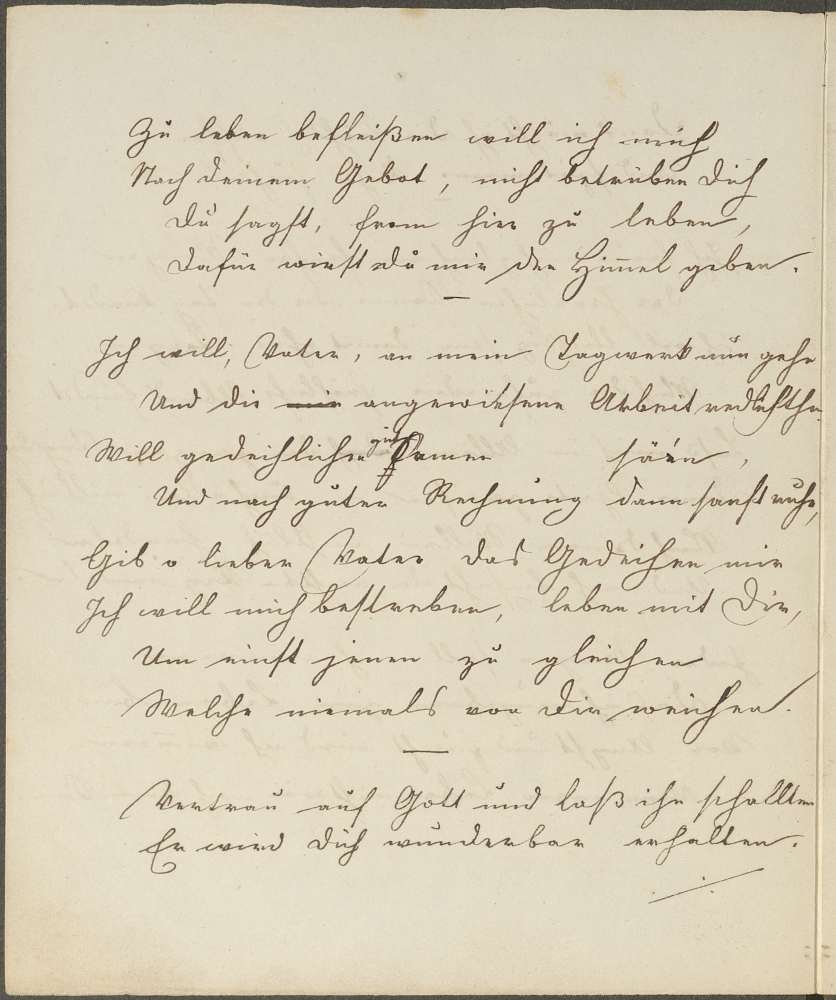 Zu leben befleißen will ich mich
Nach deinem Gebot, nicht betrüben Dich
Du sagst, from hier zu leben,
Dafür wirst du mir den Himmel geben.
Ich will, Vater, an mein Tagwerk nun gehe
Und die mir angewiesene Arbeit redlich thu
Will gedeihlichen gut Samen säen,
Und nach guter Rechnung dann sanft ruhe,
Gib o lieber Vater das Gedeihen mir
Ich will mich bestreben, leben mit Dir,
Um einst jenen zu gleichen
Welche niemals von Dir weichen.
Vertrau auf Gott und laß ihn schallten
Er wird Dich wunderbar erhalten.